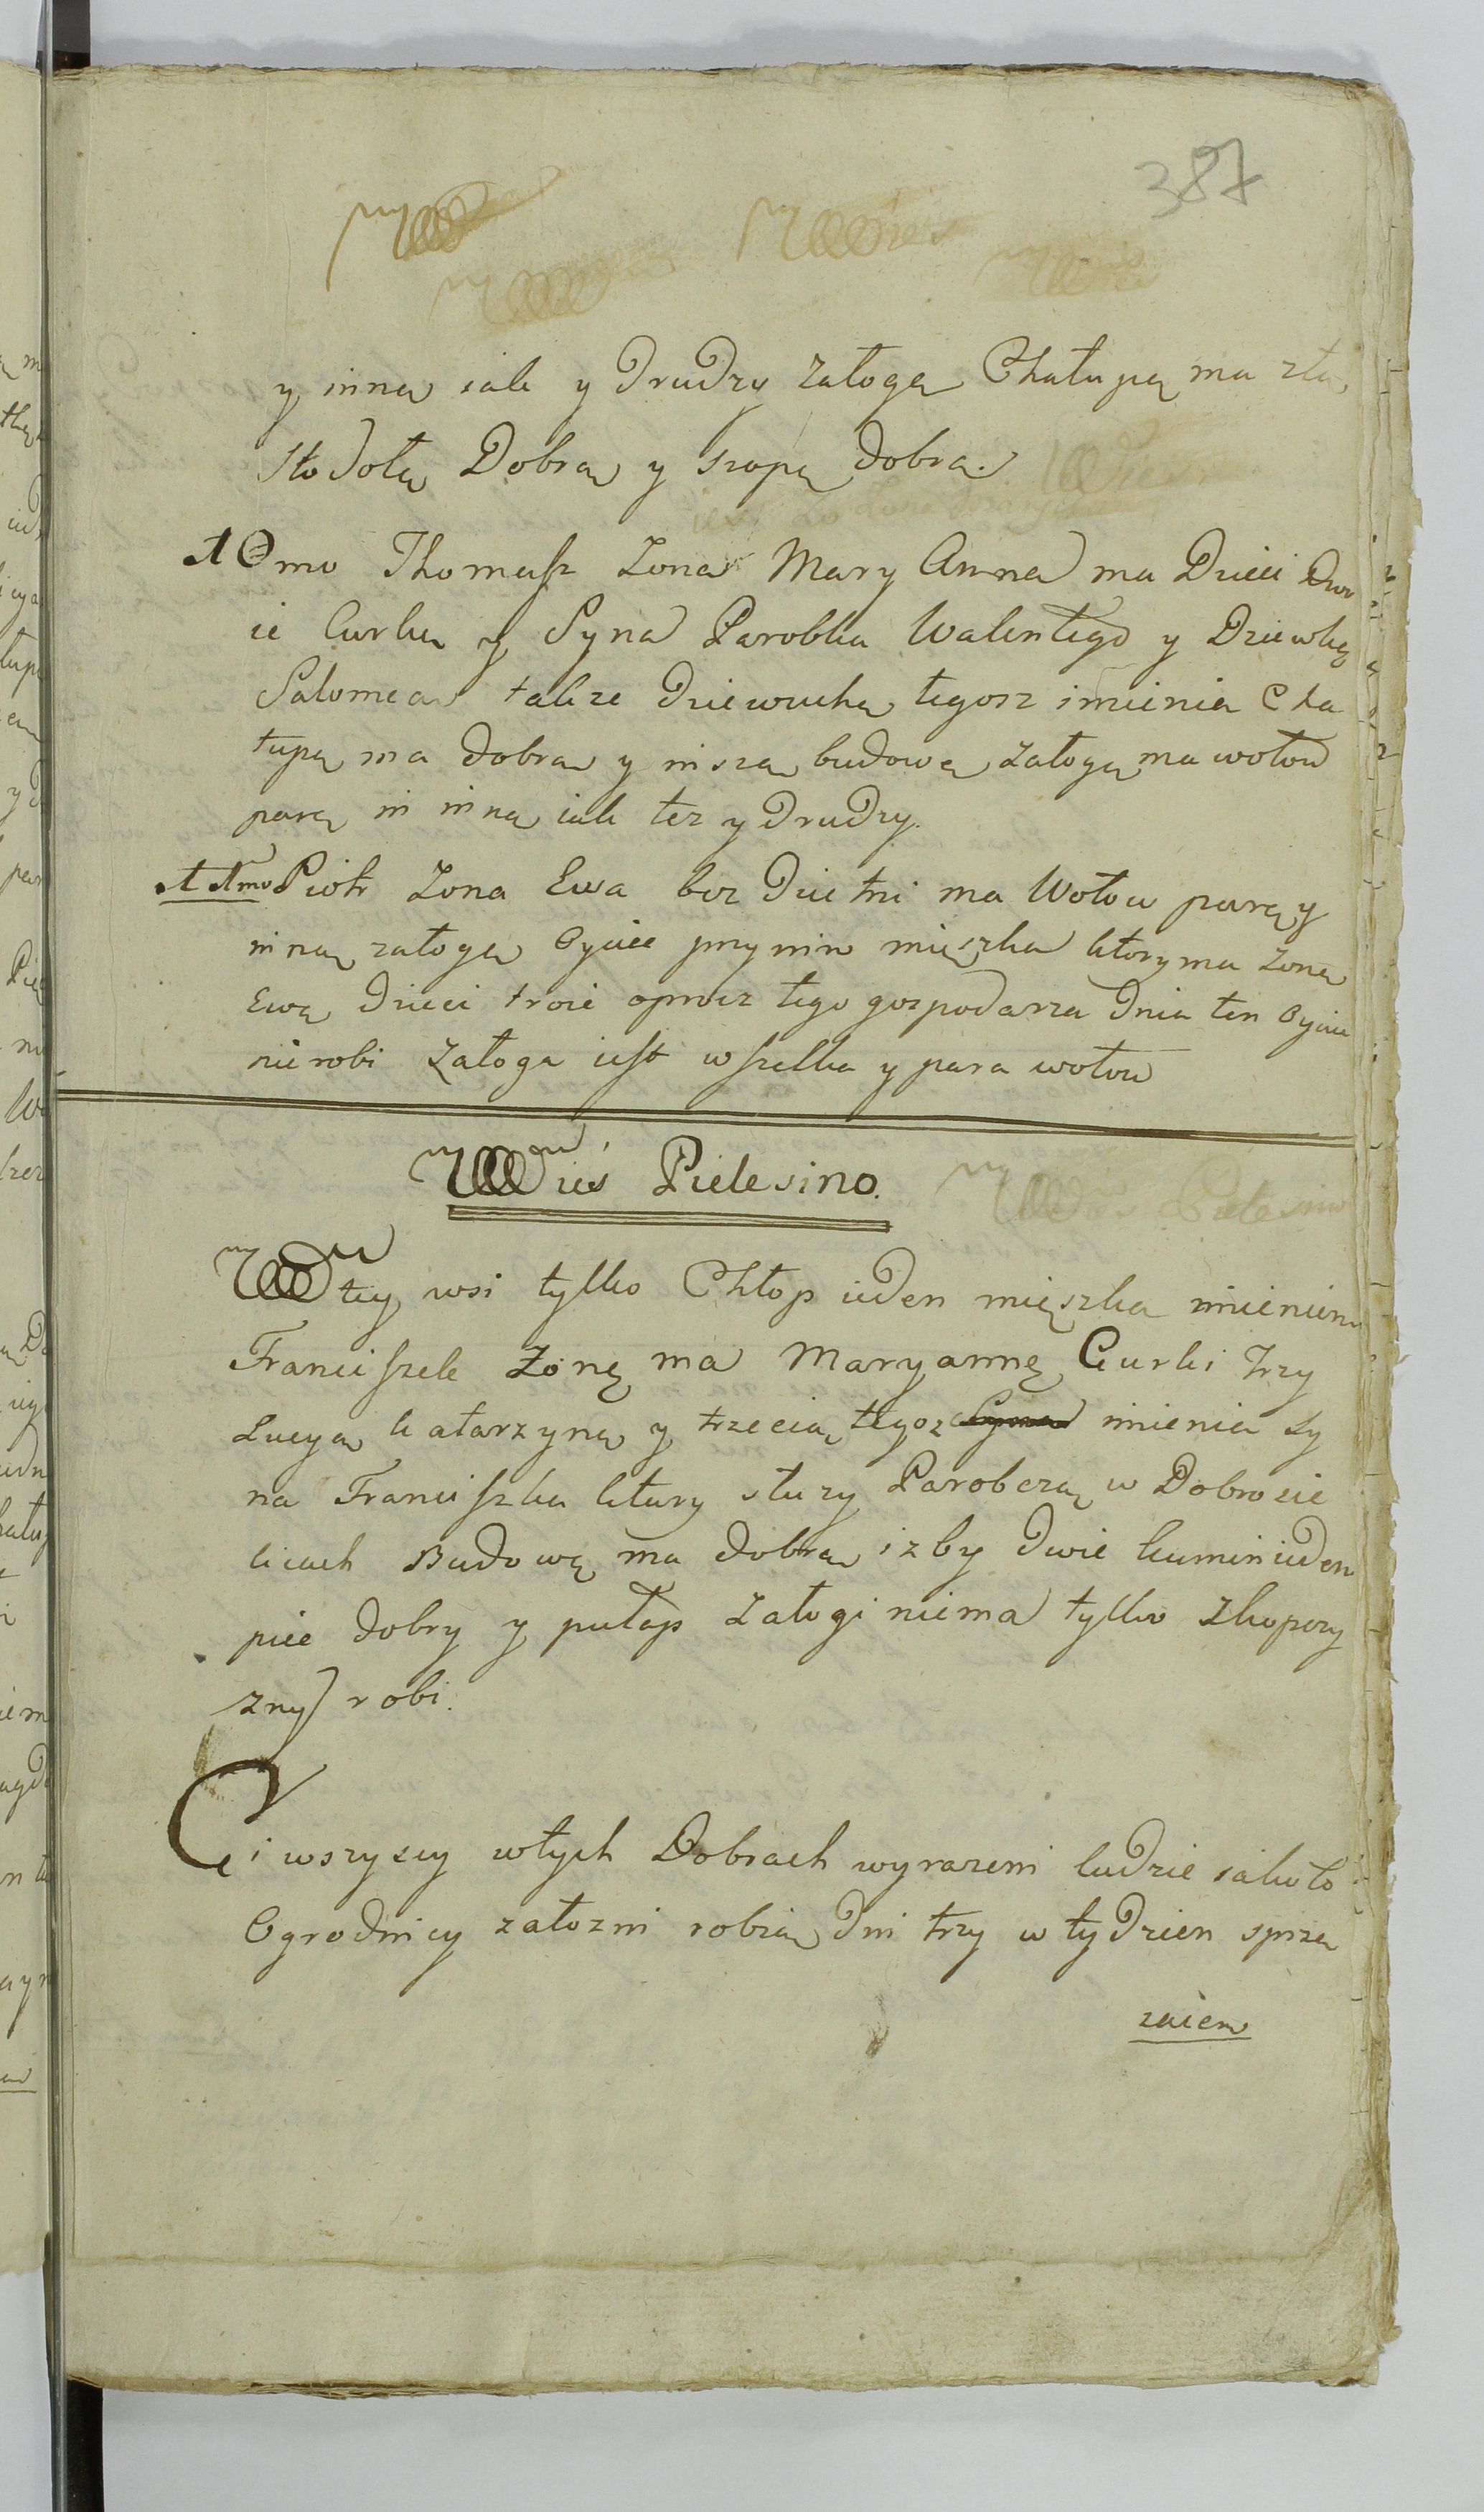 387
y inną iak y drudzy załogę Chałupę ma złą
Stodołę Dobrą y szopę dobrą.
10mo Thomasz Zona Mary Anna ma Dzieci dwo
ie Curkę y Syna Parobka Walentego y Dziewkę
Salomeą także dziewuchę tegosz imienia Cha
łupę ma dobrą y inszą budowę załogę ma wołow
parę in inną iak tez y drudzy.
11mo Piotr Zona Ewa bez dzietni ma Wołow parę y
inną załogę Oyciec przy nim mięszka ktory ma zonę
Ewę dzieci troie oprocz tego gospodarza dnia ten Oyciec
nie robi załoga iest wszelka y para wołow
Wies Pielesino.
W tey wsi tylko Chłop ieden mięszka imieniem
Franciszek Zonę ma Maryannę Curki trzy
Łucyą katarzynę y trzecią tegoz Syna imienia Sy
na Franciszka ktury słuzy Parobczą w Dobrosie
licach Budowę ma dobrą izby dwie kumin ieden
piec dobry y pułap załogi niema tylko zkopczy
zny robi.
Ci wszyscy w tych Dobrach wyrazeni ludzie iako to
Ogrodnicy załozni robią dni trzy w tydzien sprzę
zaiem